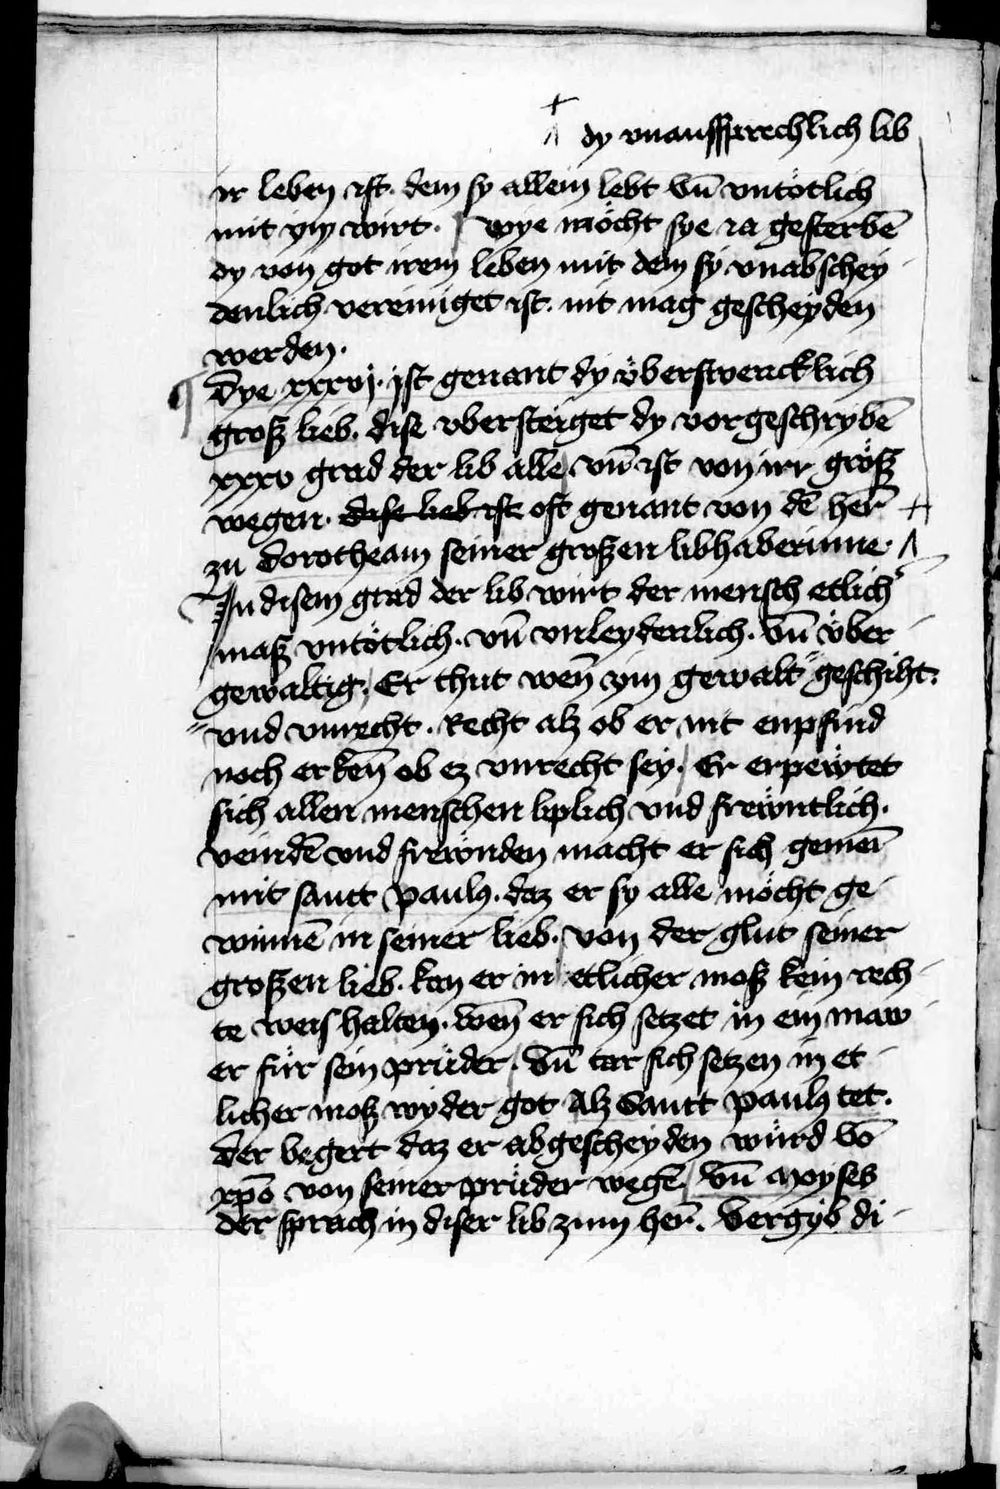 dy vnaussprechlich lib
ir leben ist. dem sy allein lebt vn̄ vntötlich
mit ym wirt. wye möcht sye ia gesterbē
dy von got irem leben mit dem sy vnabschey
denlich vereiniget ist. nit mag gescheyden
werden.
¶ Dye xxxvj. jst genant dy v̈berswencklich
groß lieb. dise vbersteiget dy vorgeschrybē
xxxv grad der lib alle vn̄ ist von irr größ
wegen. dise lieb ist oft genant von dē herr̄ +
zu dorotheam seiner großen libhaberinne. ʌ
Jn disem grad der lib wirt der mensch etlich
maß vntötlich. vn̄ vnleydenlich. vn̄ v̈ber
gewaltig. Er thut wen̄ ym gewalt " geschiht.
" vnd vnrecht. Recht alz ob er nit enpfind
noch erken̄ ob ez vnrecht sey. Er erpewtet
sich allen menschen liplich vnd frewntlich.
veindē vnd frewnden macht er sich gemeī
mit sanct Paulꝫ. daz er sy alle möcht ge
winnē in seiner lieb. von der glut seiner
großen lieb. kan er in etlicher moß kein rech
te weis halten. wen̄ er sich setzet in ein maw
er für sein prüder. vn̄ tar sich setzen in et
licher moß wyder got Alz Sanct paulꝫ tet.
der begert daz er abgescheyden würd vō
xp̄o von seiner prüder wegē. vn̄ Moyses
der sprach in diser lib zum herr̄. Vergyb di